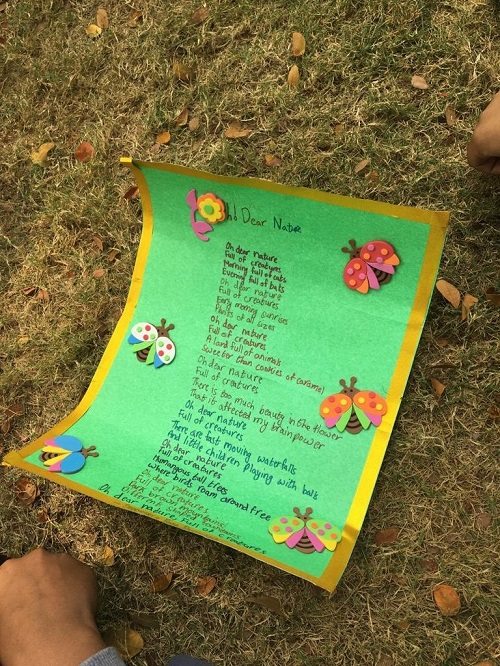 Oh! Dear Nature
Oh dear nature
Full of creatures
Morning full of cats
Evening full of bats
Oh dear nature
Full of creatures
Early morning sunrises
Plants of all sizes
Oh dear nature
Full of creatures
A land full of animals
Sweeter than cookies of caramel
Oh dear nature
Full of creatures
There is too much beauty in the flower
That it affected my brainpower
Oh dear nature
Full of creatures
There are fast moving waterfalls
And little children playing with balls
Oh dear nature
Full of creatures
Humangous tall trees
Where birds roam around free
Oh dear nature
Full of creatures
Oh dear nature full of creatures